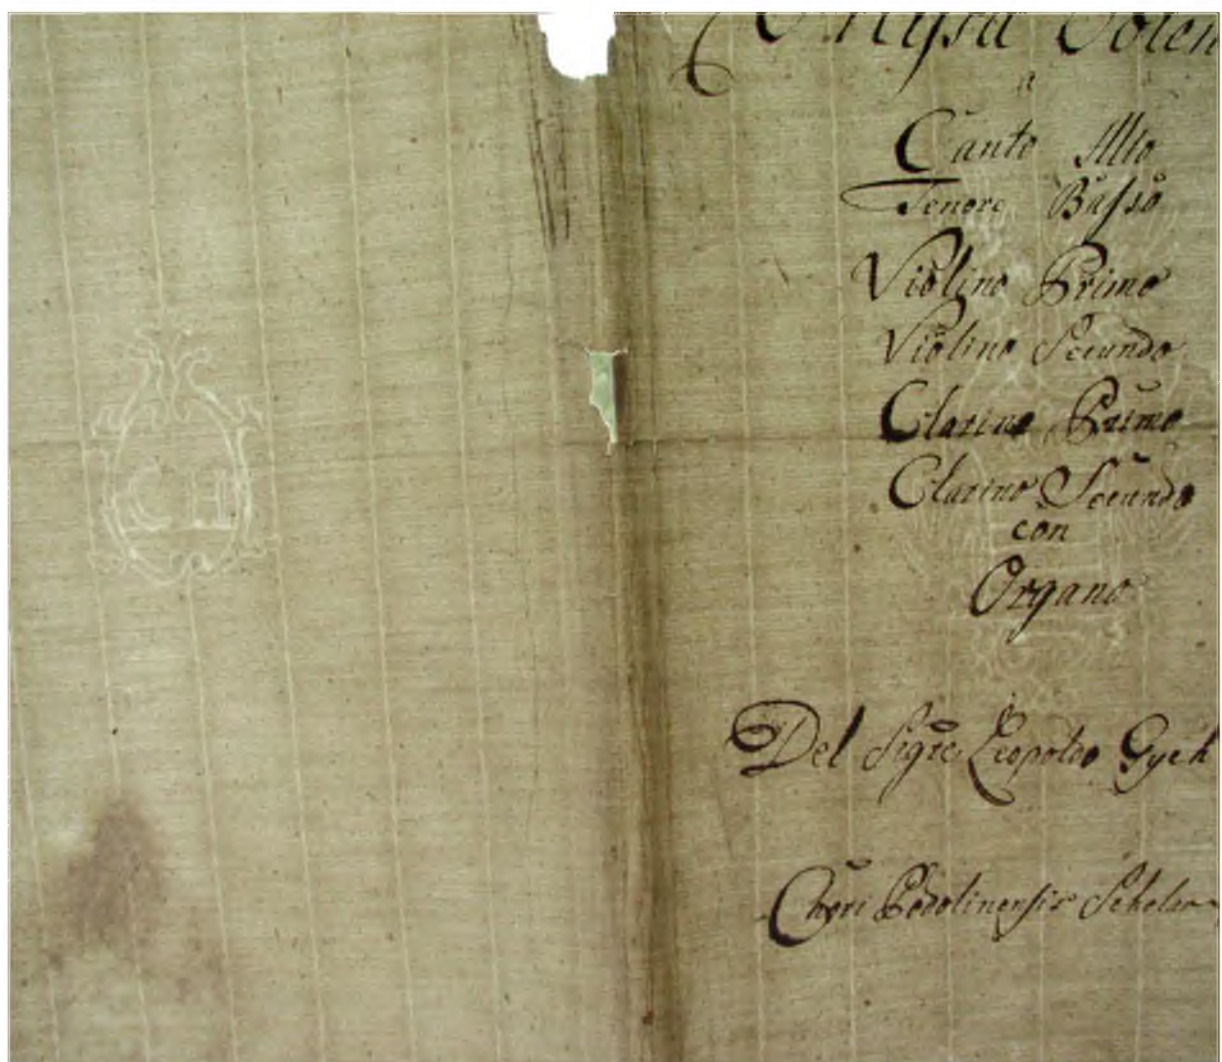 Missa Solen
a
Canto Alto
Tenore Basso
Violino Primo
Violino Secundo
Clarino Primo
Clarino Secundo
con
Organo
Del Sigre Leopoldo Gyek
Chori Podolinensis Scholar
C H